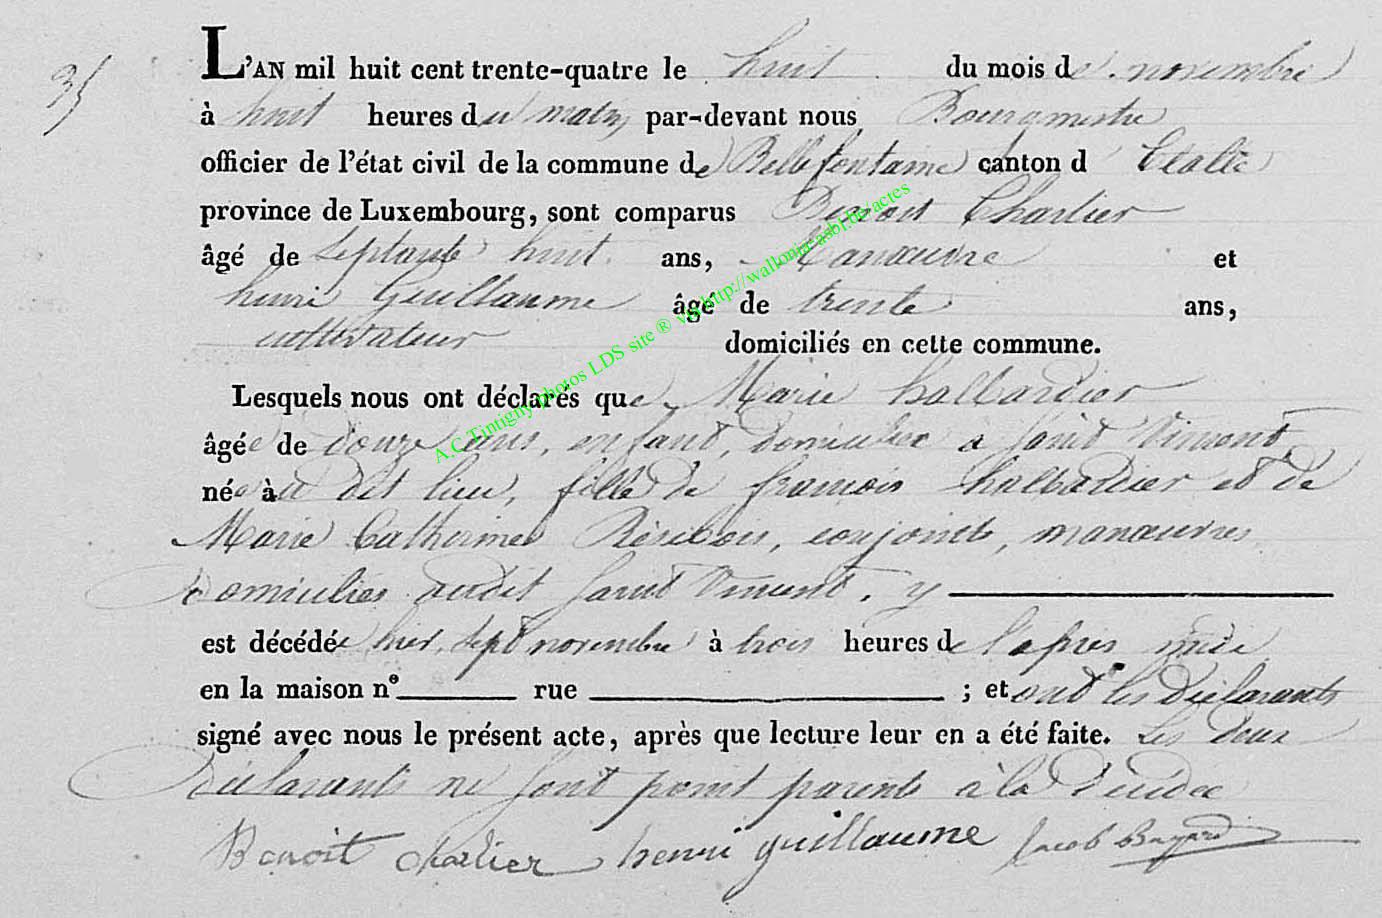 35
L'AN mil huit cent trente-quatre le huit du mois de novembre
à huit heures du matin par-devant nous Bourgmestre
officier de l'état civil de la commune de Bellefontaine canton d' Etalle
province de Luxembourg, sont comparus Benoit Charlier
âgé de septante huit ans, Manœuvre et
henri Guillaume âgé de trente ans,
cultivateur domiciliés en cette commune.
Lesquels nous ont déclarés que Marie hallardier
âgée de douze ans, enfant, domiciliée à Saint Vincent,
née au dit lieu, fille de françois hallardier et de
Marie Catherine conjoints, manœuvres
domiciliés audit Saint Vincent, y
est décédée hier, sept novembre à trois heures de l'après midi
en la maison n° rue ; et ont les déclarants
signé avec nous le présent acte, après que lecture leur en a été faite. Les deux
déclarants ne sont point parents à la décédée
Benoit charlier henri guillaume Jacob
A.C.Tintigny photos LDS site ® via http://wallonia-asbl.be/actes